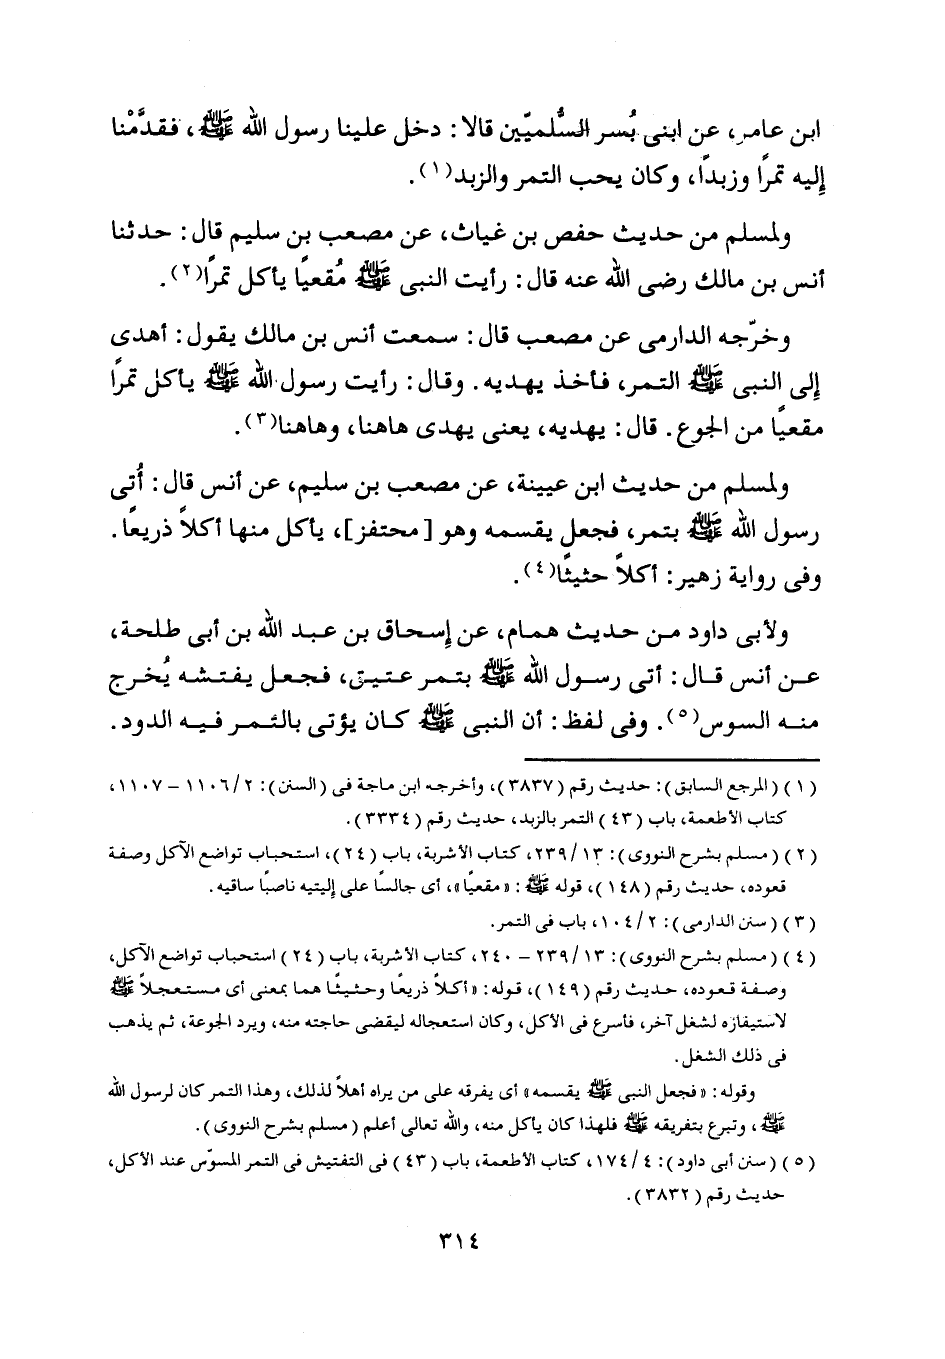 ابن عامر، عن ابنى بُسر السُّلميّين قالا: دخل علينا رسول الله ﷺ، فقدَّمْنا
إليه تمرًا وزبدًا، وكان يحب التمر والزبد(١).
ولمسلم من حديث حفص بن غياث، عن مصعب بن سليم قال: حدثنا
أنس بن مالك رضى الله عنه قال: رأيت النبى ﷺ مُقعيًا يأكل تمرًا(٢).
وخرّجه الدارمى عن مصعب قال: سمعت أنس بن مالك يقول: أهدى
إلى النبى ﷺ التمر، فأخذ يهديه. وقال: رأيت رسول الله ﷺ يأكل تمرًا
مقعيًا من الجوع. قال: يهديه، يعنى يهدى هاهنا، وهاهنا(٣).
ولمسلم من حديث ابن عيينة، عن مصعب بن سليم، عن أنس قال: أُتى
رسول الله ﷺ بتمر، فجعل يقسمه وهو [محتفز]، يأكل منها أكلاً ذريعًا.
وفى رواية زهير: أكلاً حثيثًا(٤).
ولأبى داود من حديث همام، عن إسحاق بن عبد الله بن أبى طلحة،
عن أنس قال: أتى رسول الله ﷺ بتمر عتيق، فجعل يفتشه يُخرج
منه السوس(٥). وفى لفظ: أن النبى ﷺ كان يؤتى بالتمر فيه الدود.
(١) (المرجع السابق): حديث رقم (٣٨٣٧)، وأخرجه ابن ماجة فى (السنن): ٢/ ١١٠٦ - ١١٠٧،
كتاب الأطعمة، باب (٤٣) التمر بالزبد، حديث رقم (٣٣٣٤).
(٢) (مسلم بشرح النووى): ١٣/ ٢٣٩، كتاب الأشربة، باب (٢٤)، استحباب تواضع الآكل وصفة
قعوده، حديث رقم (١٤٨)، قوله ﷺ: «مقعيًا»، أى جالسًا على إليتيه ناصبًا ساقيه.
(٣) (سنن الدارمى): ٢/ ١٠٤، باب فى التمر.
(٤) (مسلم بشرح النووى): ١٣/ ٢٣٩ - ٢٤٠، كتاب الأشربة، باب (٢٤) استحباب تواضع الآكل،
وصفة قعوده، حديث رقم (١٤٩)، قوله: «أكلاً ذريعًا وحثيثًا هما بمعنى أى مستعجلاً ﷺ
لاستيفازه لشغل آخر، فأسرع فى الأكل، وكان استعجاله ليقضى حاجته منه، ويرد الجوعة، ثم يذهب
فى ذلك الشغل.
وقوله: «فجعل النبى ﷺ يقسمه» أى يفرقه على من يراه أهلاً لذلك، وهذا التمر كان لرسول الله
ﷺ، وتبرع بتفريقه ﷺ فلهذا كان يأكل منه، والله تعالى أعلم (مسلم بشرح النووى).
(٥) (سنن أبى داود): ٤/ ١٧٤، كتاب الأطعمة، باب (٤٣) فى التفتيش فى التمر المسوّس عند الأكل،
حديث رقم (٣٨٣٢).
٣١٤